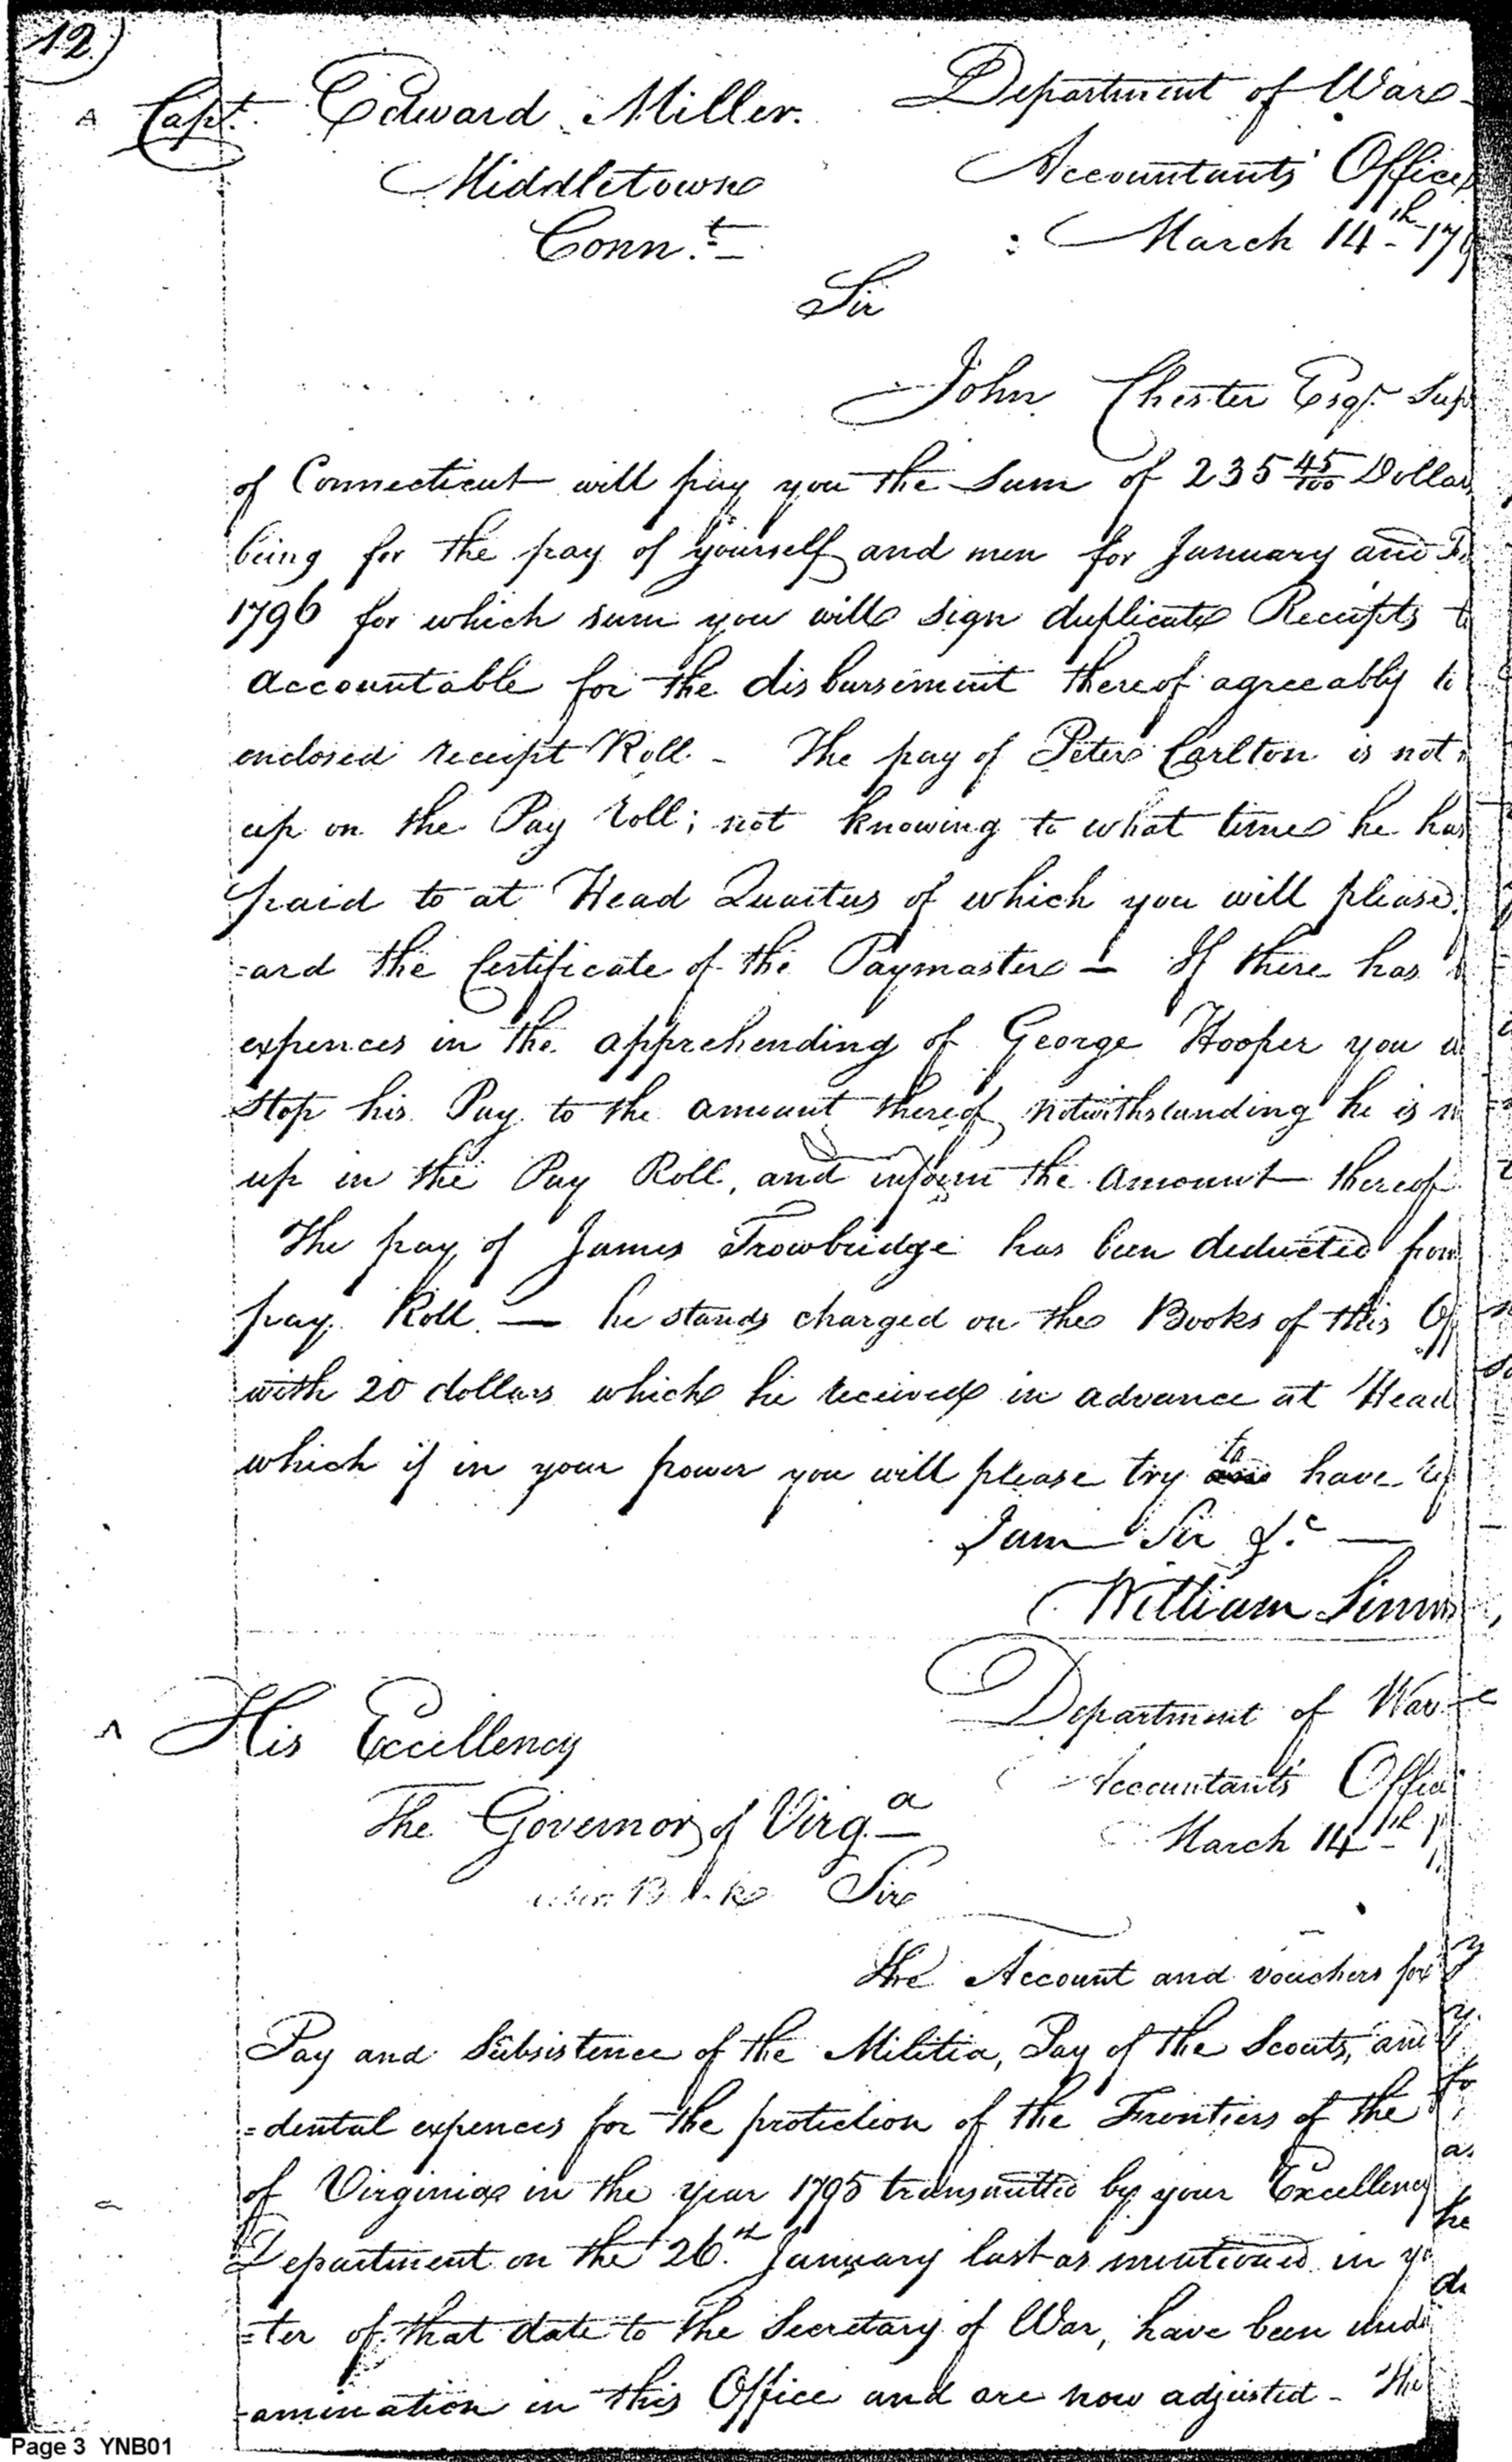 12
Capt. Edward Miller.
Middletown
Conn.t
Department of War
Accountants' Office
March 14th 179
Sir
John Chester Esqr. Sup
of Connecticut will pay you the Sum of 235 45/100 Dollars
being for the pay of yourself and men for January and Fe
1796 for which sum you will sign duplicate Receipts to
accountable for the disbursement thereof agreeably to
enclosed receipt Roll - The pay of Peter Carlton is not
up on the Pay Roll; not knowing to what time he has
paid to at Head Quarters of which you will please
=ard the Certificate of the Paymaster — If there has
expences in the apprehending of George Hooper you
stop his Pay to the amount thereof notwithstanding he is
up in the Pay Roll, and inform the amount thereof
The pay of James Trowbridge has been deducted from
pay Roll. — he stands charged on the Books of this Off
with 20 dollars which he received in advance at Head
which if in your power you will please try to have
I am Sir &c —
William Simm
His Excellency
The Governor of Virga
Department of War
Accountants' Office
March 14th
Sir
The Account and vouchers for
Pay and Subsistence of the Militia, Pay of the Scouts, and
=dental expences for the protection of the Frontiers of the
of Virginia in the year 1795 transmitted by your Excellency
Department on the 26th January last as mentioned in yo
=ter of that date to the Secretary of War, have been unde
=amination in this Office and are now adjusted - The
Page 3 YNB01